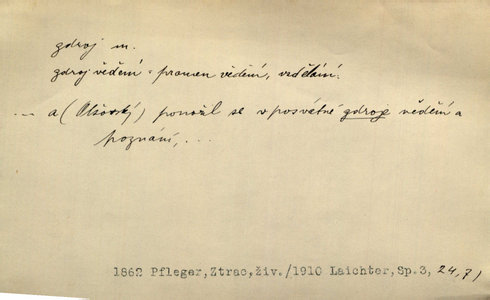 zdroj m.
zdroj vědění = pramen vědění, vzdělání.
... a (Olšovský) ponořil se v posvátné zdroje vědění a
poznání, ...
1862 Pfleger, Ztrac, živ. /1910 Laichter, Sp. 3, 24,71